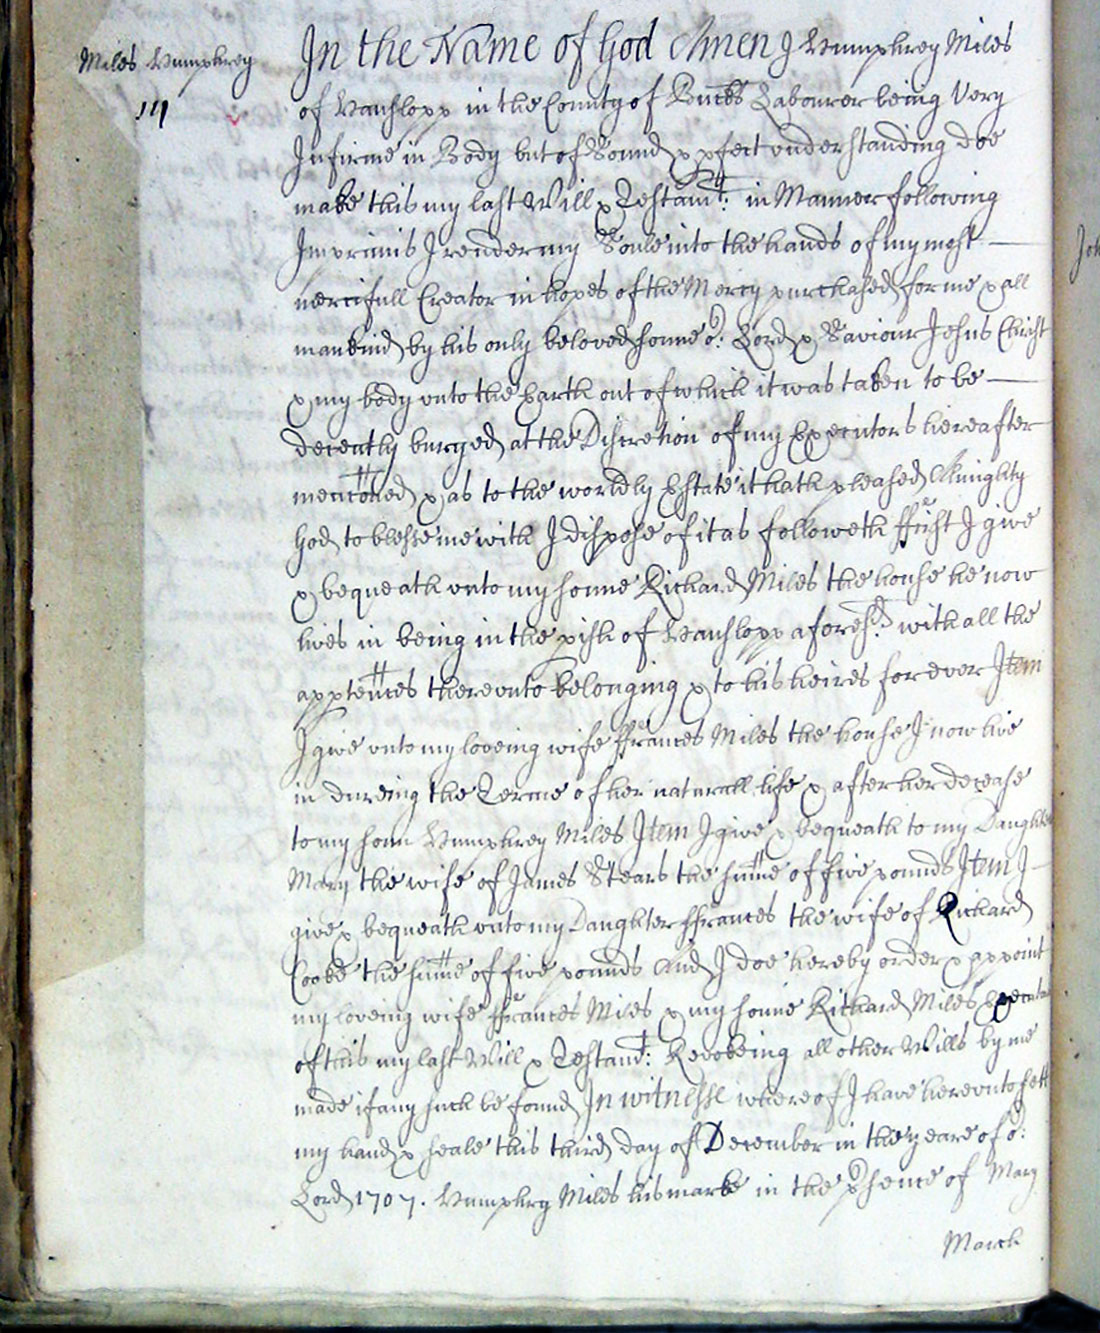 Miles Humphrey
In the Name of God Amen I Humphrey Miles
of Hanslopp in the County of Bucks Labourer being Very
Infirme in Body but of Sound & pfect understanding doe
make this my last Will & Testamt: in Manner following
Imprimis I render my Soule into the hands of my most
mercifull Creator in hopes of the Mercy purchased for me & all
mankind by his only beloved sonne or: Lord & Saviour Jesus Christ
& my body unto the Earth out of which it was taken to be
decently buryed at the Discretion of my Executors hereafter
mencioned & as to the worldly Estate it hath pleased Almighty
God to blesse me with I dispose of it as followeth ffirst I give
& bequeath unto my sonne Richard Miles the house he now
lives in being in the pish of Hanslopp aforesd: with all the
apptences thereunto belonging & to his heires for ever Item
I give unto my loveing wife ffrances Miles the house I now live
in dureing the Terme of her naturall life & after her decease
to my sonn Humphrey Miles Item I give & bequeath to my Daughter
Mary the wife of James Stears the sume of five pounds Item I
give & bequeath unto my Daughter ffrances the wife of Richard
Cooke the sume of five pounds And I doe hereby order & appoint
my loveing wife ffrances Miles & my sonne Richard Miles Executors
of this my last Will & Testamt: Revokeing all other Wills by me
made if any such be found In witnesse whereof I have hereunto sett
my hand & seale this third day of December in the yeare of or:
Lord 1707. Humphry Miles his marke in the psence of Mary
March